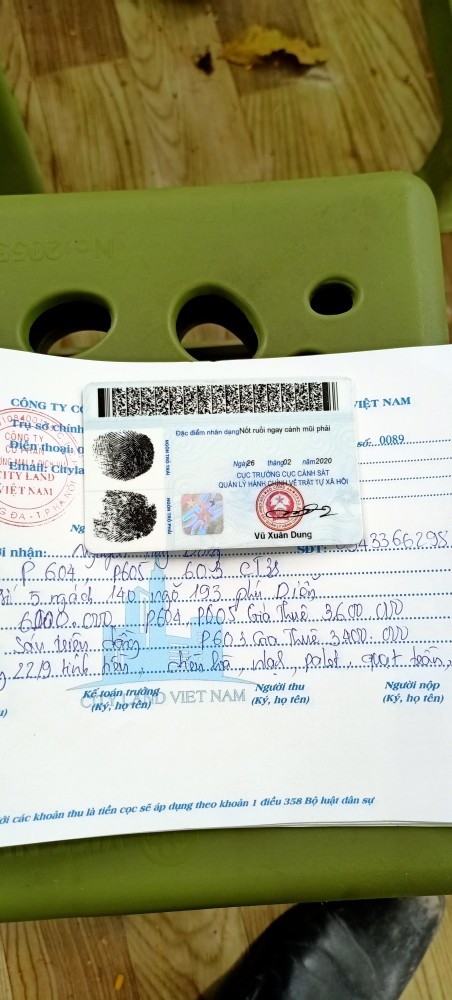 No: 2053
CÔNG TY C
VIỆT NAM
Trụ sở chính
Điện thoại
Email: Cityla
số: 0089
CÔNG TY
CỔ PHẦN
CITY LAND
VIỆT NAM
ĐA - T.P HÀ NỘI
Đặc điểm nhân dạng Nốt ruồi ngay cánh mũi phải
NGÓN TRỎ TRÁI
NGÓN TRỎ PHẢI
Ngày 26 tháng 02 năm 2020
CỤC TRƯỞNG CỤC CẢNH SÁT
QUẢN LÝ HÀNH CHÍNH VỀ TRẬT TỰ XÃ HỘI
Vũ Xuân Dung
i nhận:
SĐT: 43366298
P 604, P605 603 CT8
số 5 ngách 140 ngõ 193 phú Diễn
6000.000 P604 P605 Giá Thuê 3600 000
Sáu triệu đồng P603 Giá Thuê 3400.000
22/9
Kế toán trưởng
(Ký, họ tên)
Người thu
(Ký, họ tên)
Người nộp
(Ký, họ tên)
CITY LAND VIET NAM
ới các khoản thu là tiền cọc sẽ áp dụng theo khoản 1 điều 358 Bộ luật dân sự